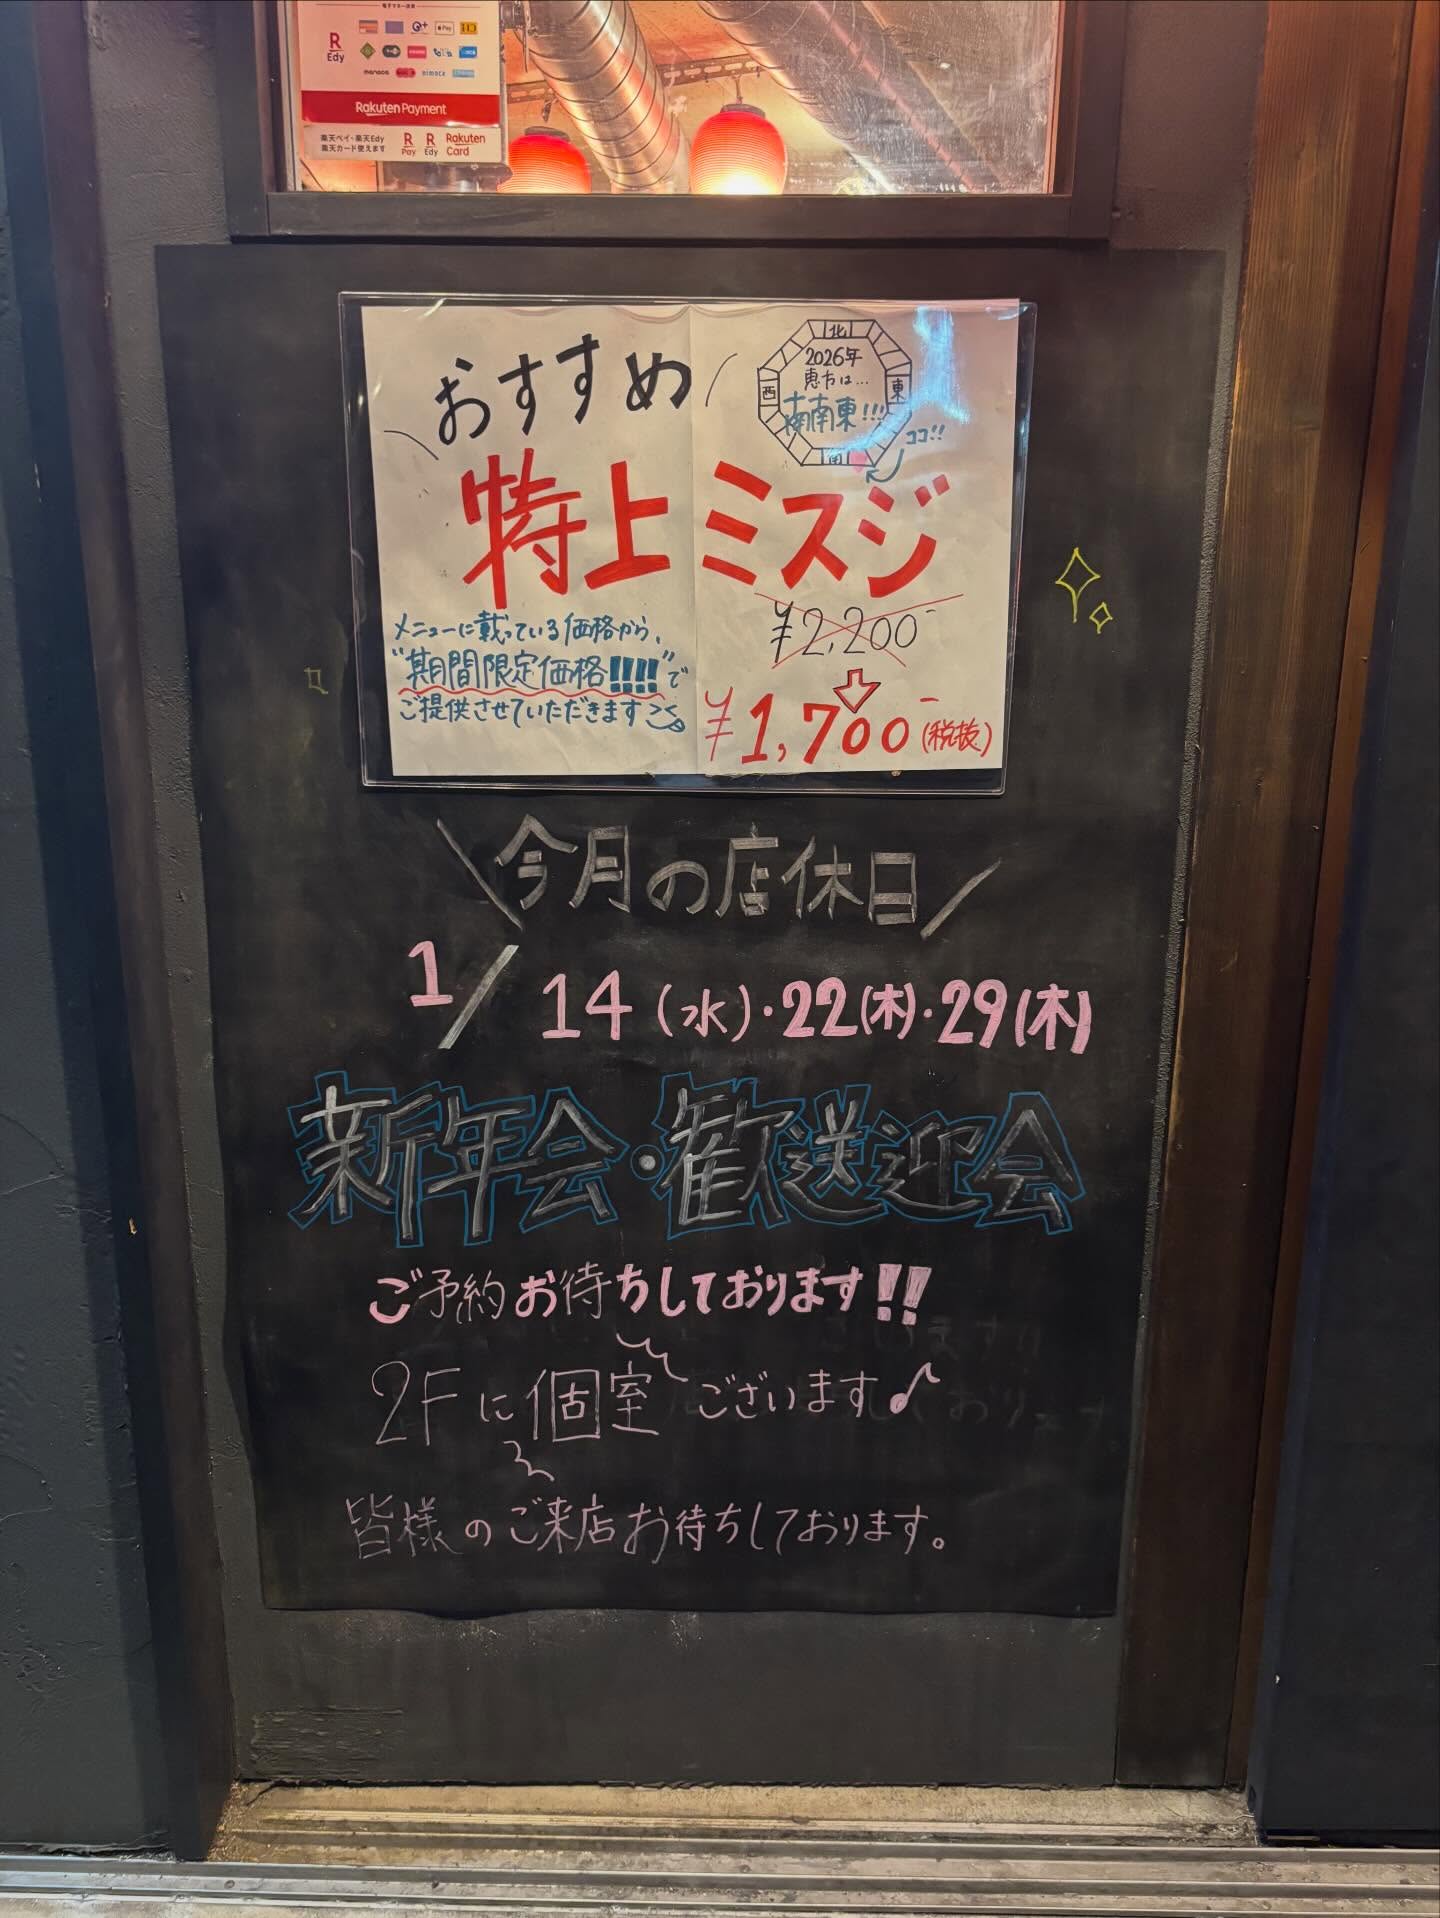 電子マネー決済
R Edy
QUICPay+
Pay
iD
manaca
nimoca
Rakuten Payment
楽天ペイ・楽天Edy
楽天カード使えます
R Pay R Edy Rakuten Card
おすすめ
北
2026年
恵方は...
西
東
南南東!!!
南
ココ!!
特上ミスジ
メニューに載っている価格から、
"期間限定価格!!!!"で
ご提供させていただきます
¥2,200-
¥1,700-(税抜)
今月の店休日
1/14(水)・22(木)・29(木)
新年会・歓送迎会
ご予約お待ちしております!!
2Fに個室ございます♪
皆様のご来店お待ちしております。